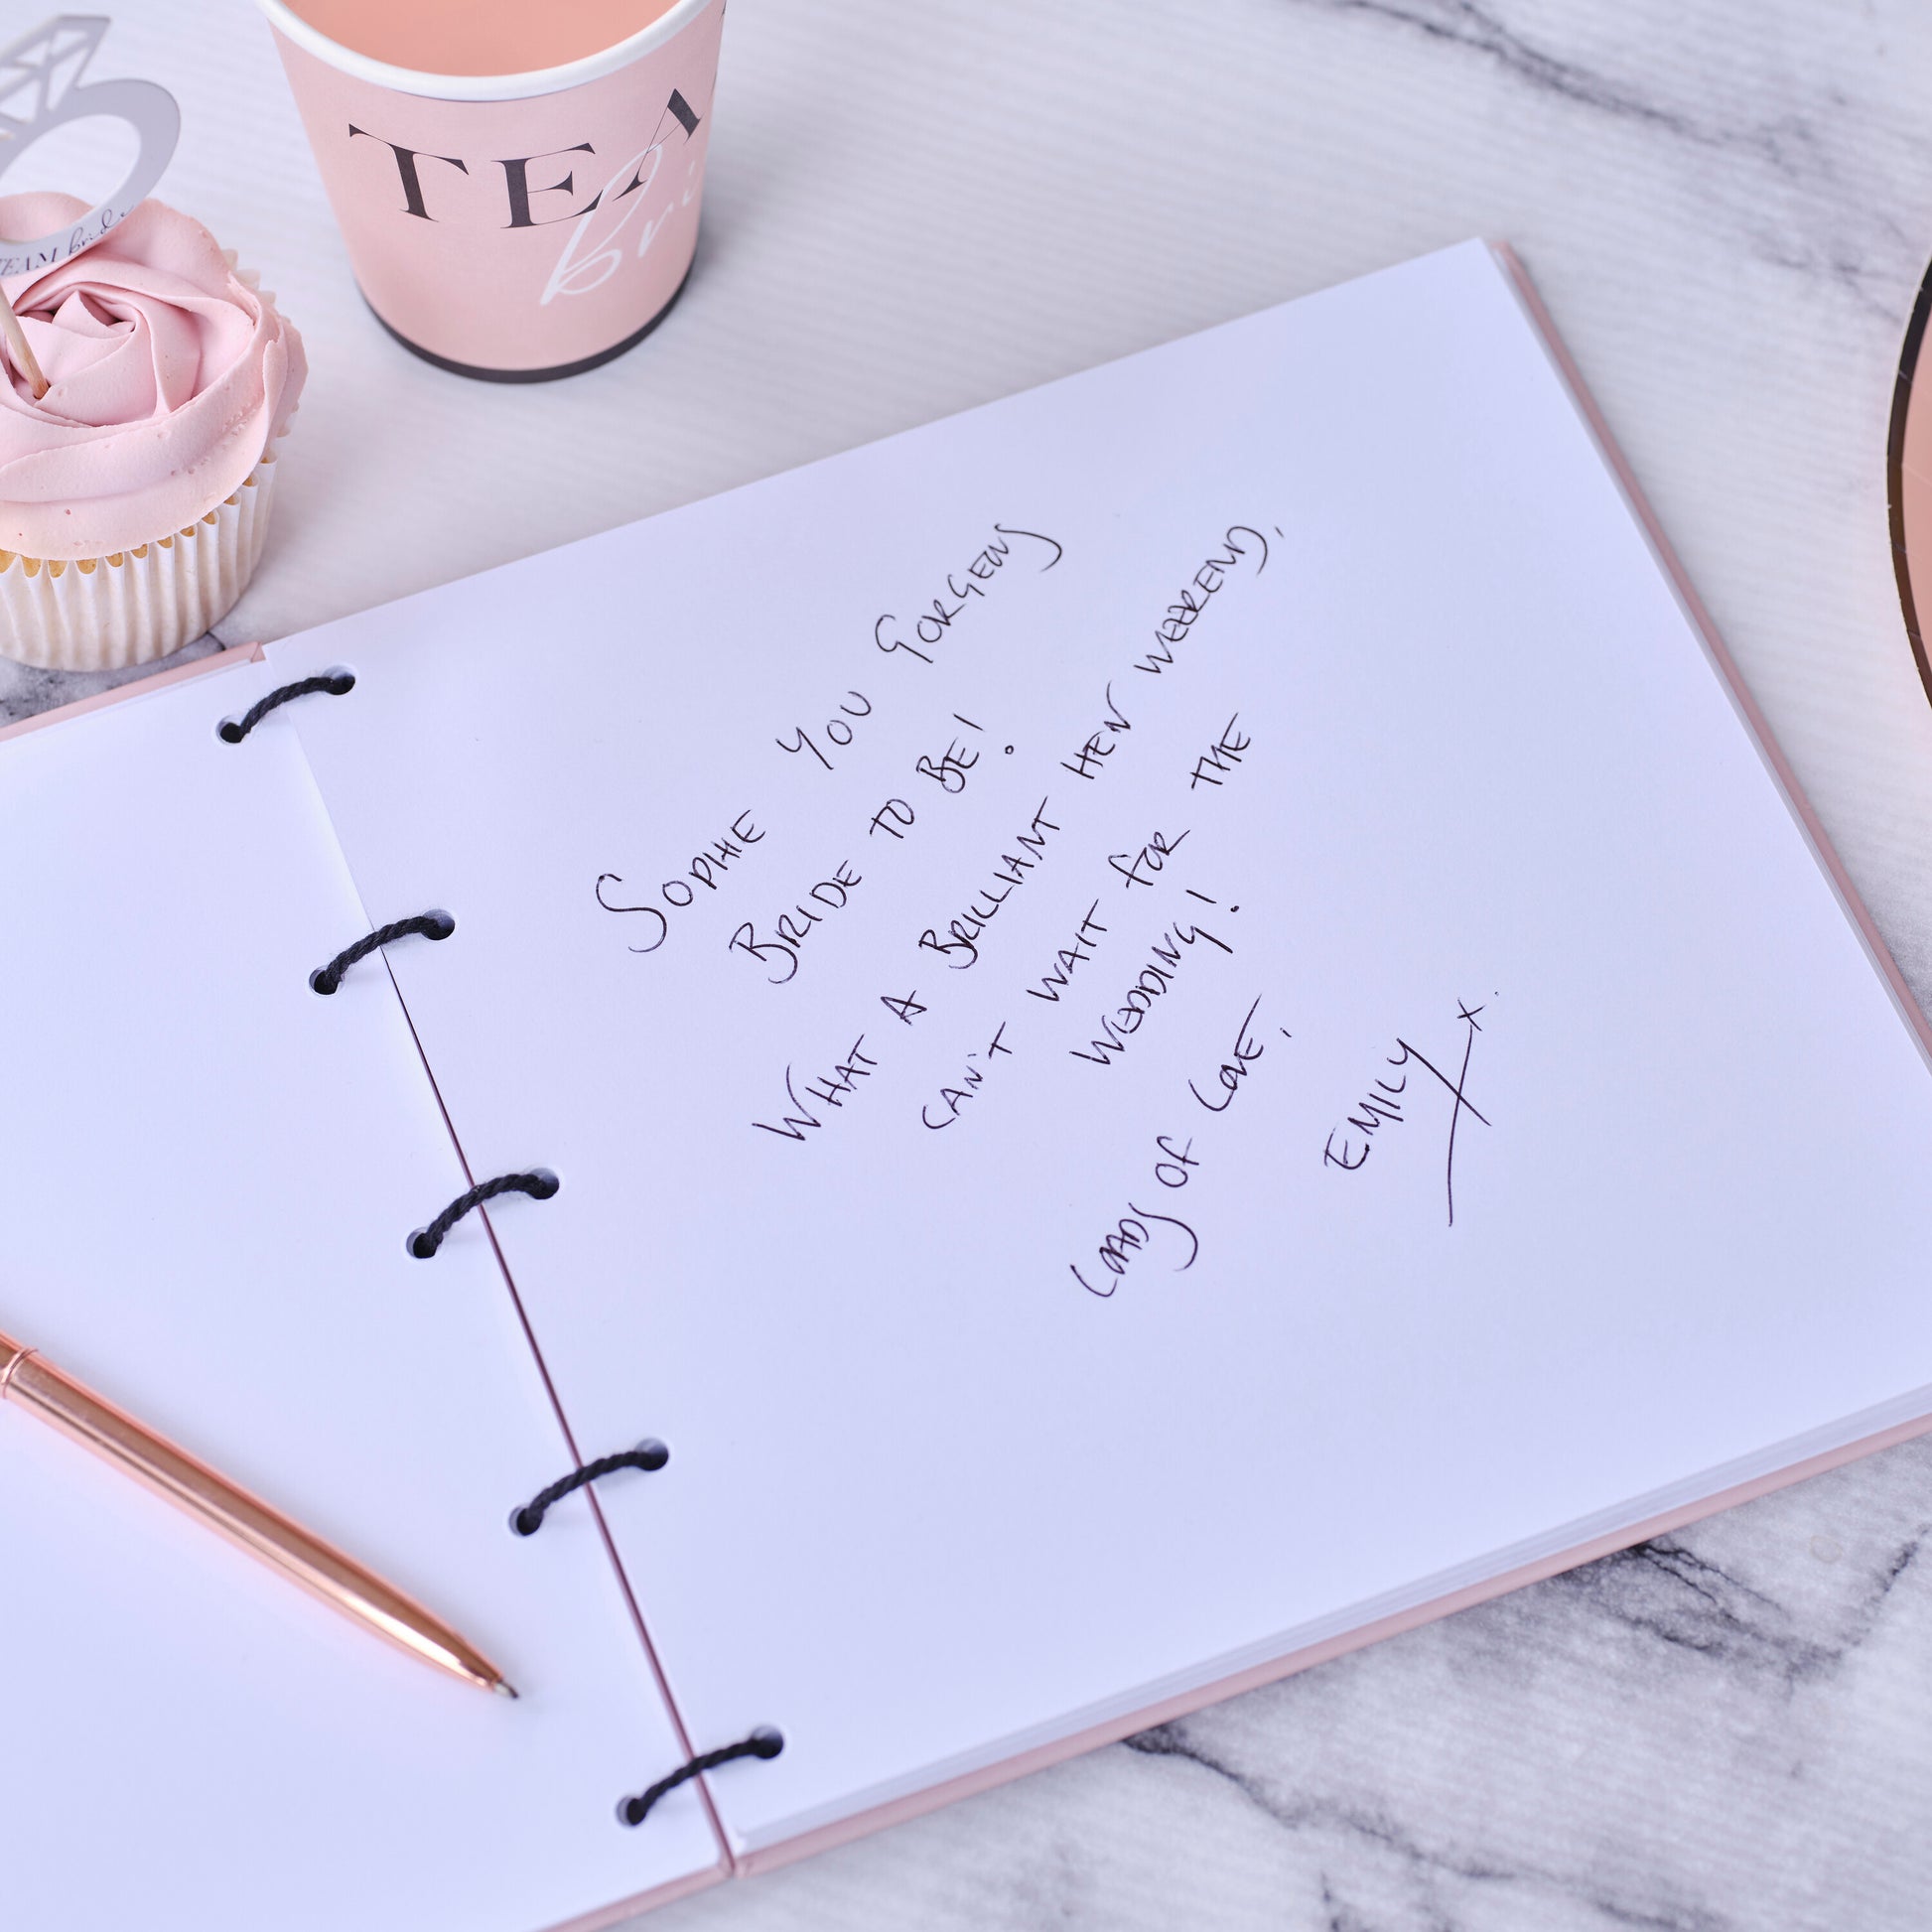 TEA
bri
TEAM bride
SOPHIE YOU GORGEOUS
BRIDE TO BE!
WHAT A BRILLIANT HEN WEEKEND,
CAN'T WAIT FOR THE
WEDDING!
LOADS OF LOVE,
EMILY x.